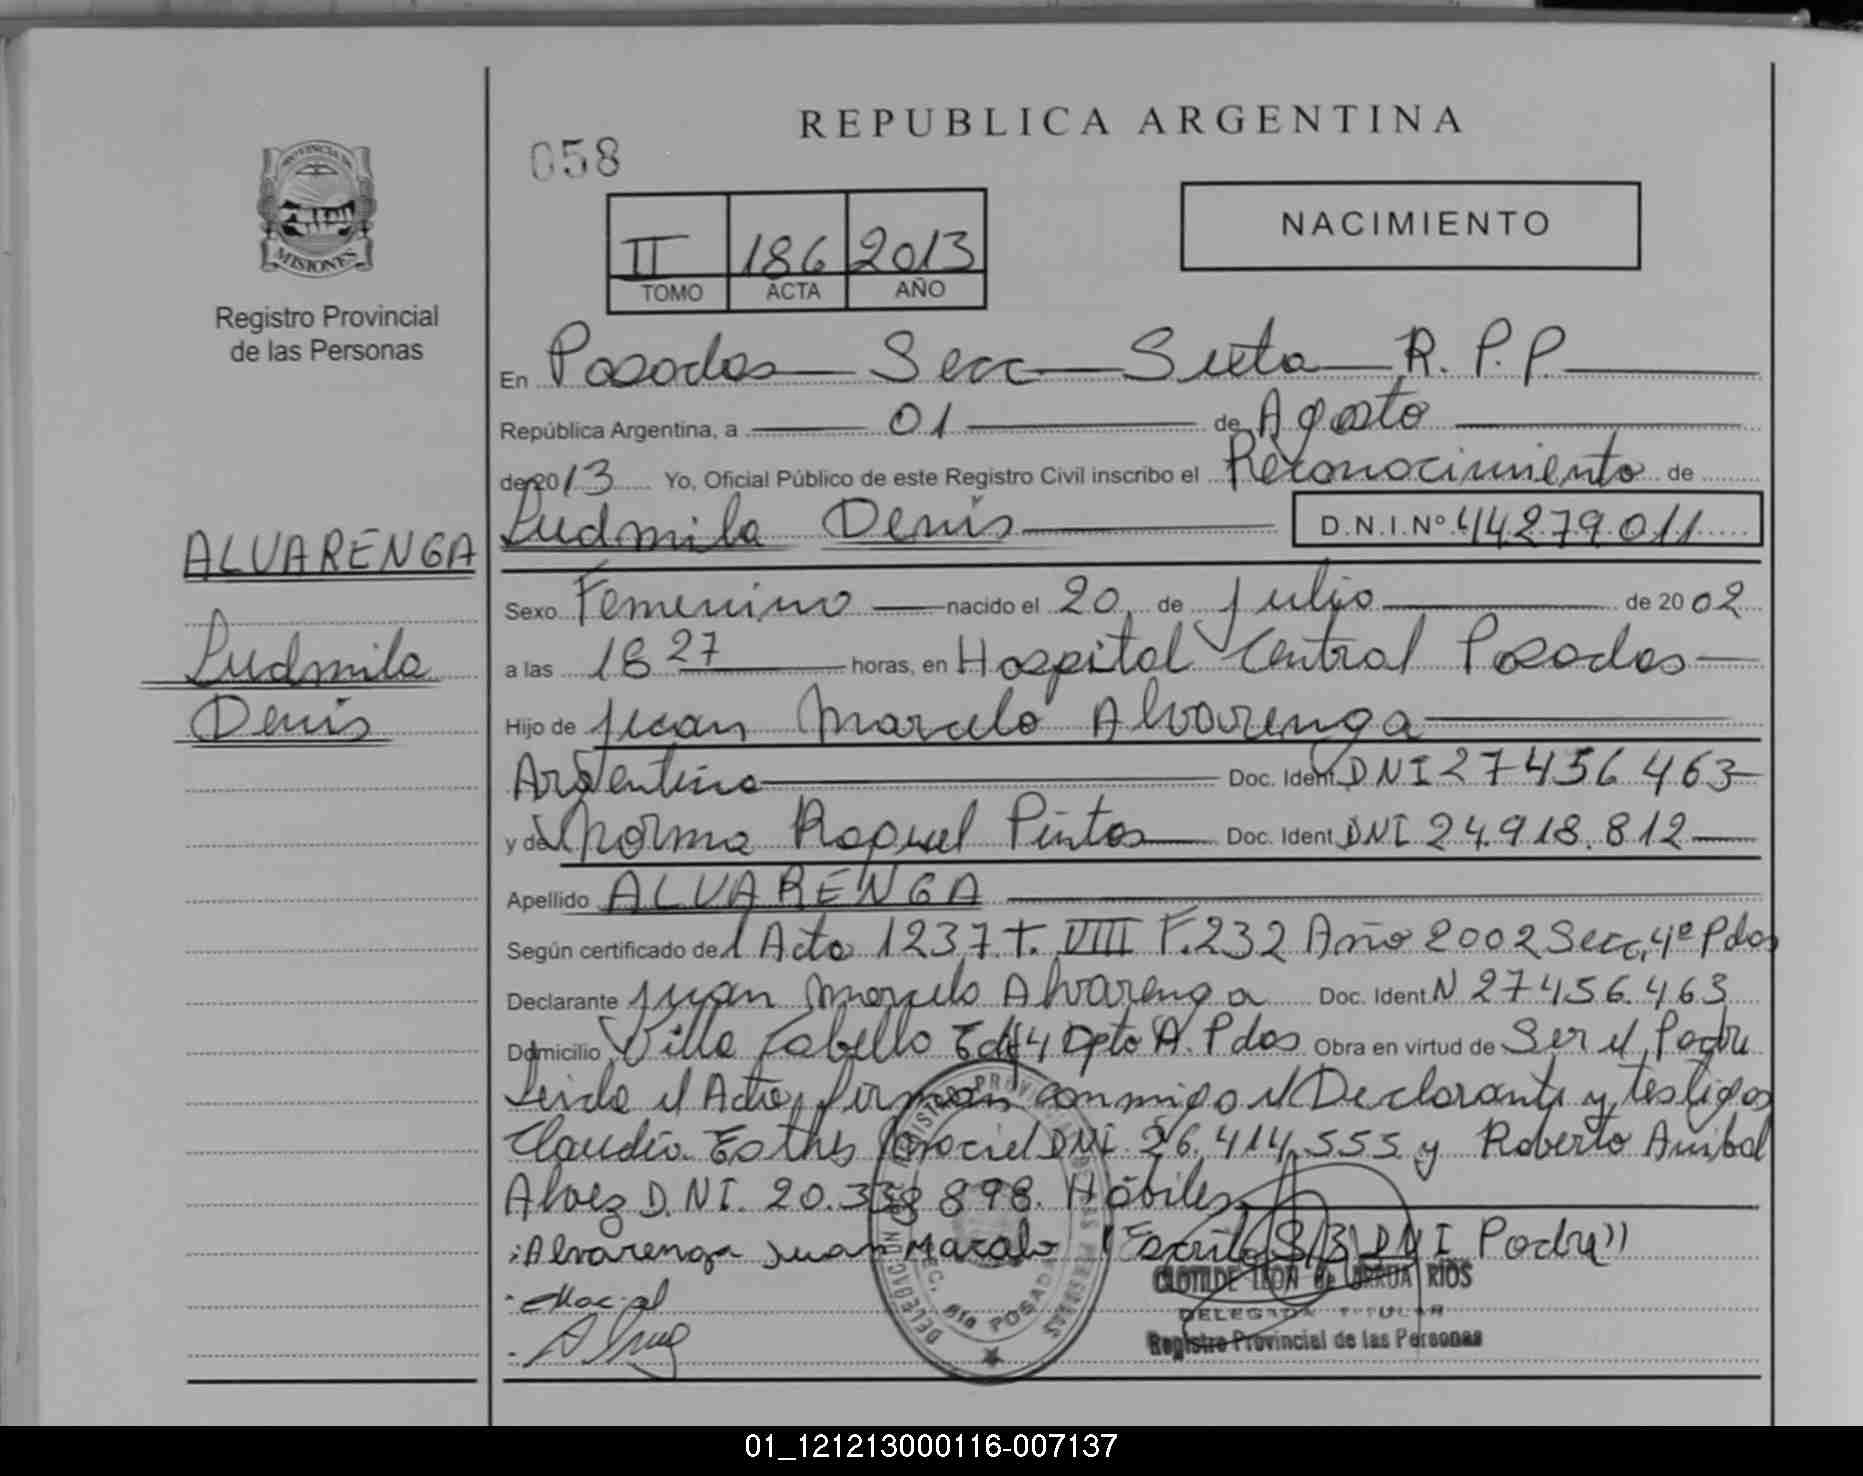 REPUBLICA ARGENTINA
058
NACIMIENTO
PROVINCIA DE
MISIONES
Registro Provincial
de las Personas
II 186 2013
TOMO ACTA AÑO
En Posadas Secc Sexta R.P.P
República Argentina, a 01 de Agosto
de 2013 Yo, Oficial Público de este Registro Civil inscribo el Reconocimiento de
Ludmila Denis D.N.I.Nº 44.279.011
ALVARENGA
Ludmila
Denis
Sexo Femenino nacido el 20 de Julio de 2002
a las 16 27 horas, en Hospital Central Posadas
Hijo de Juan Marcelo Alvarenga
Argentino Doc. Ident. DNI 27456463
y de Norma Raquel Pintos Doc. Ident. DNI 24.918.812
Apellido ALVARENGA
Según certificado del Acta 1237 T. VIII F.232 Año 2002 Secc, 4º Pdas
Declarante Juan Marcelo Alvarenga Doc. Ident. N 27456.463
Domicilio Villa Cabello Edif 4 Dpto A. Pdas Obra en virtud de Ser el Padre
Leida el Acta, firman conmigo el Declarante y testigos
Claudia Esther DNI 26.414.555 y Roberto Anibal
Alvez D.NI. 20.338 898. Hábiles
Alvarenga Juan Marcelo "Escrito S/B DNI Padre"
CLOTILDE LEON de URRUA RIOS
DELEGADA TITULAR
Registro Provincial de las Personas
01_121213000116-007137